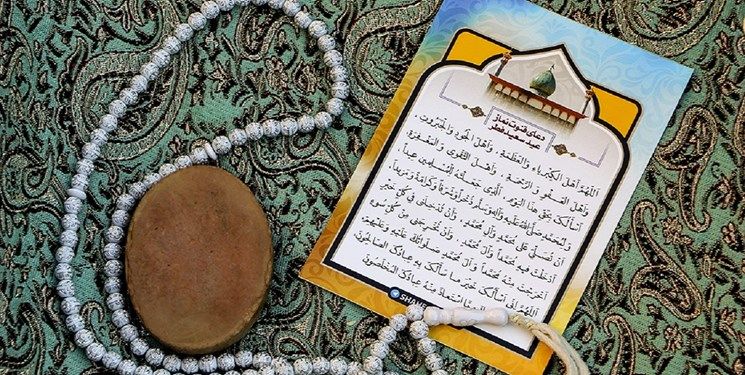 دعای قنوت نماز
عید سعید فطر
اَللّهُمَّ اَهْلَ الْکِبْرِیاءِ وَالْعَظَمَةِ، وَاَهْلَ الْجُودِ وَالْجَبَرُوتِ
وَاَهْلَ الْعَفْوِ وَالرَّحْمَةِ، وَاَهْلَ التَّقْوی وَالْمَغْفِرَةِ
اَسْأَلُکَ بِحَقِّ هذَا الْیَومِ الَّذی جَعَلْتَهُ لِلْمُسْلِمینَ عیداً
وَلِمُحَمَّدٍ صَلَّی اللهُ عَلَیْهِ وَآلِهِ ذُخْراً وَشَرَفاً وَکَرامَةً وَمَزیداً
اَنْ تُصَلِّیَ عَلی مُحَمَّدٍ وَآلِ مُحَمَّدٍ، وَاَنْ تُدْخِلَنی فی کُلِّ خَیْرٍ
اَدْخَلْتَ فیهِ مُحَمَّداً وَآلَ مُحَمَّدٍ، وَاَنْ تُخْرِجَنی مِنْ کُلِّ سُوءٍ
اَخْرَجْتَ مِنْهُ مُحَمَّداً وَآلَ مُحَمَّدٍ صَلَواتُکَ عَلَیْهِ وَعَلَیْهِمْ
اَللّهُمَّ اِنّی اَسْأَلُکَ خَیْرَ ما سَأَلَکَ بِهِ عِبادُکَ الصّالِحُونَ
اسْتَعاذَ مِنْهُ عِبادُکَ الْمُخْلَصُونَ